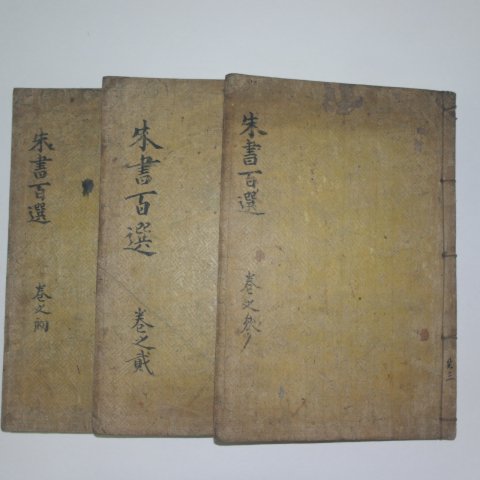 朱書百選
卷之
朱書百選
卷之貳
朱書百選
卷之參